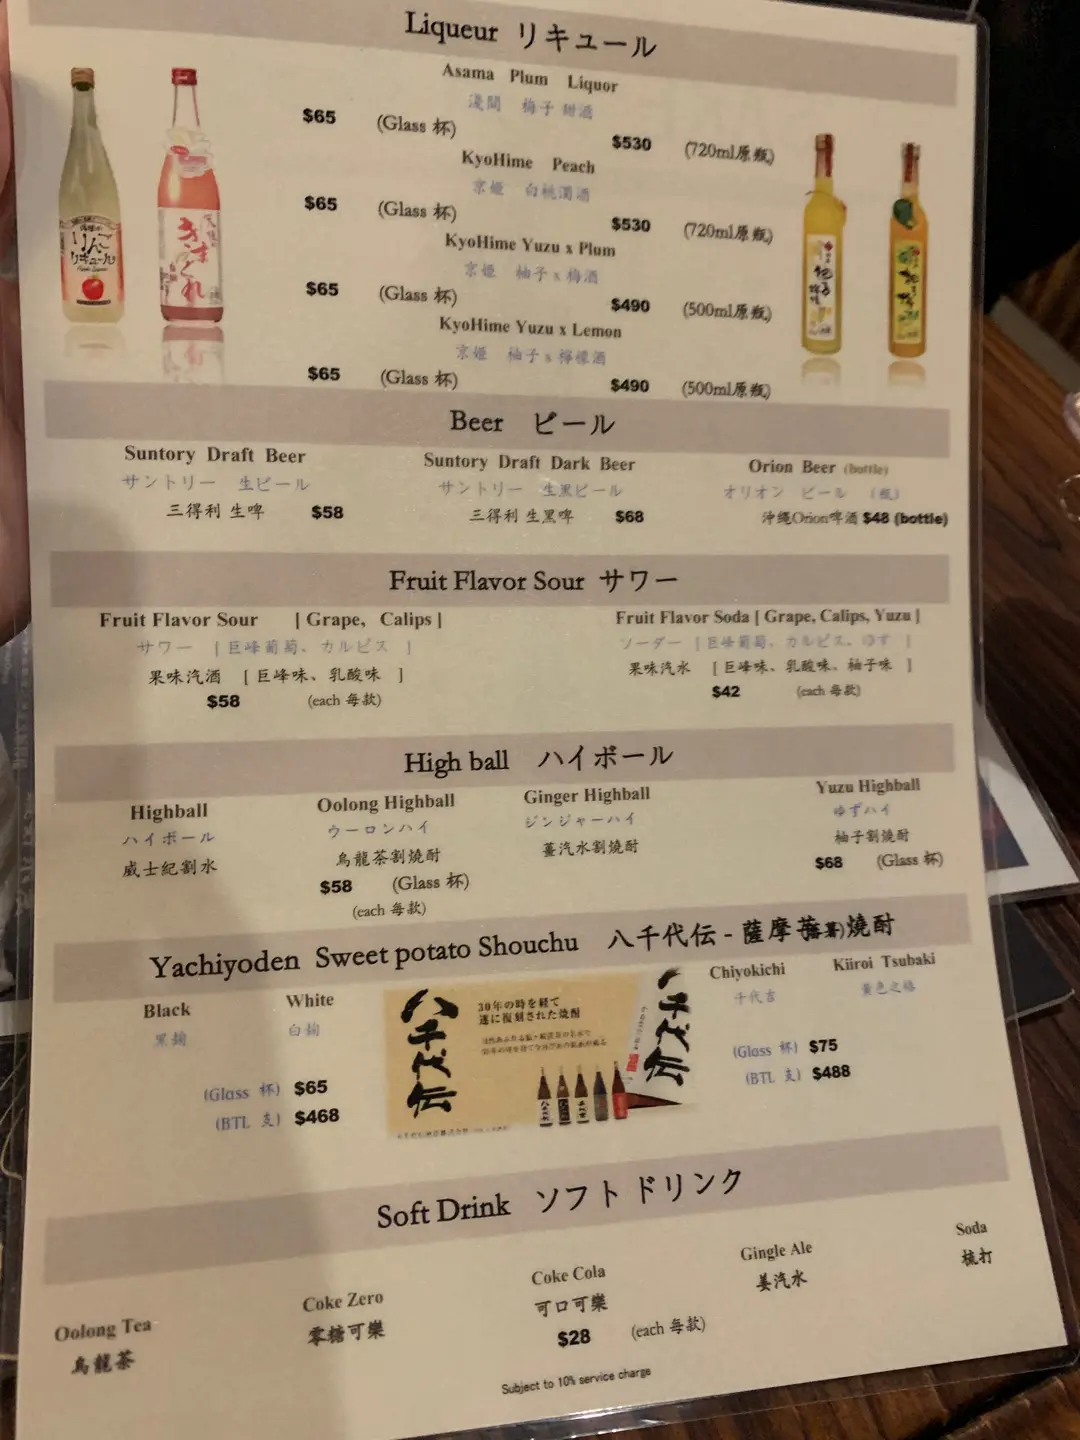 Liqueur リキュール
Asama Plum Liquor
淺間 梅子甜酒
$65 (Glass 杯) $530 (720ml原瓶)
KyoHime Peach
京姬 白桃濁酒
$65 (Glass 杯) $530 (720ml原瓶)
KyoHime Yuzu x Plum
京姬 柚子 x 梅酒
$65 (Glass 杯) $490 (500ml原瓶)
KyoHime Yuzu x Lemon
京姬 柚子 x 檸檬酒
$65 (Glass 杯) $490 (500ml原瓶)
りんご
リキュール
Beer ビール
Suntory Draft Beer
サントリー 生ビール
三得利 生啤 $58
Suntory Draft Dark Beer
サントリー 生黒ビール
三得利 生黑啤 $68
Orion Beer (bottle)
オリオン ビール (瓶)
沖縄Orion啤酒 $48 (bottle)
Fruit Flavor Sour サワー
Fruit Flavor Sour [ Grape, Calips ]
サワー [ 巨峰葡萄、カルピス ]
果味汽酒 [ 巨峰味、乳酸味 ]
$58 (each 每款)
Fruit Flavor Soda [ Grape, Calips, Yuzu ]
ソーダー [ 巨峰葡萄、カルピス、ゆず ]
果味汽水 [ 巨峰味、乳酸味、柚子味 ]
$42 (each 每款)
High ball ハイボール
Highball
ハイボール
威士紀割水
Oolong Highball
ウーロンハイ
烏龍茶割燒酎
Ginger Highball
ジンジャーハイ
薑汽水割燒酎
$58 (Glass 杯)
(each 每款)
Yuzu Highball
ゆずハイ
柚子割燒酎
$68 (Glass 杯)
Yachiyoden Sweet potato Shouchu 八千代伝 - 薩摩 燒酎
Black
黑麹
White
白麹
(Glass 杯) $65
(BTL 支) $468
八千代伝
30年の時を経て
遂に復刻された焼酎
八千代伝
Chiyokichi
千代吉
Kiiroi Tsubaki
黃色之椿
(Glass 杯) $75
(BTL 支) $488
Soft Drink ソフトドリンク
Oolong Tea
烏龍茶
Coke Zero
零糖可樂
Coke Cola
可口可樂
Gingle Ale
姜汽水
Soda
梳打
$28 (each 每款)
Subject to 10% service charge